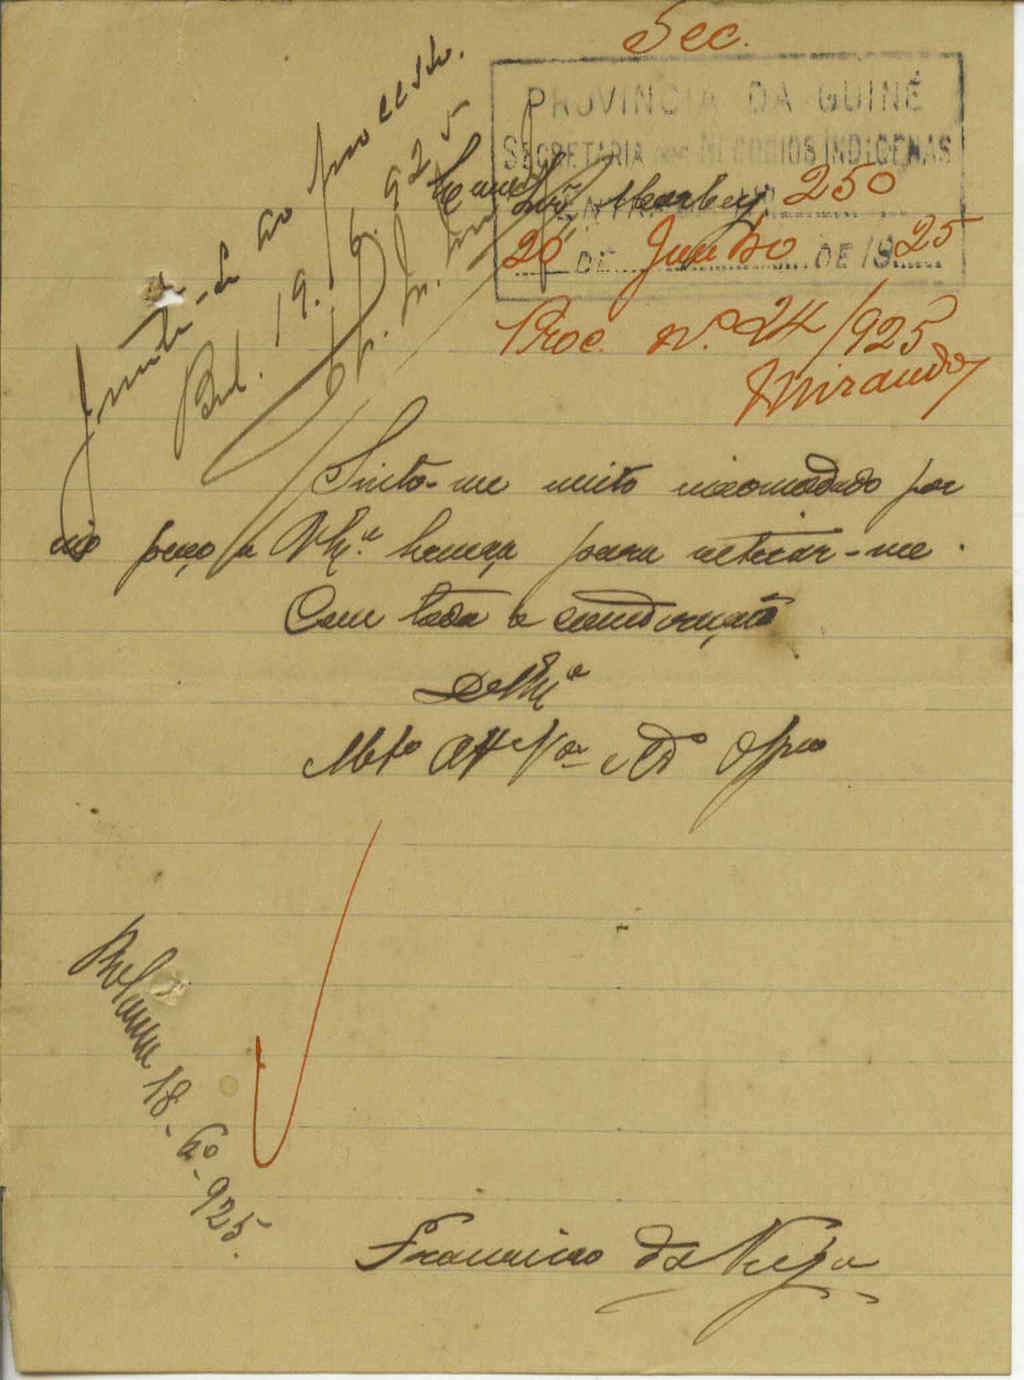 Sec.
PROVINCIA DA GUINÉ
SECRETARIA DOS NEGOCIOS INDIGENAS
ENTRADA Nº 250
20 DE Junho DE 1925
Proc. n.º 24/925
Miranda
Junte-se ao processo.
Bol. 19. 6. 925
Sinto-me muito incomodado por
isso peço a V.Exª licença para retirar-me.
Com toda a consideração
De V.Exª
Mtº Attº Vºr
Bolama 18-6º-925.
Francisco da Veiga